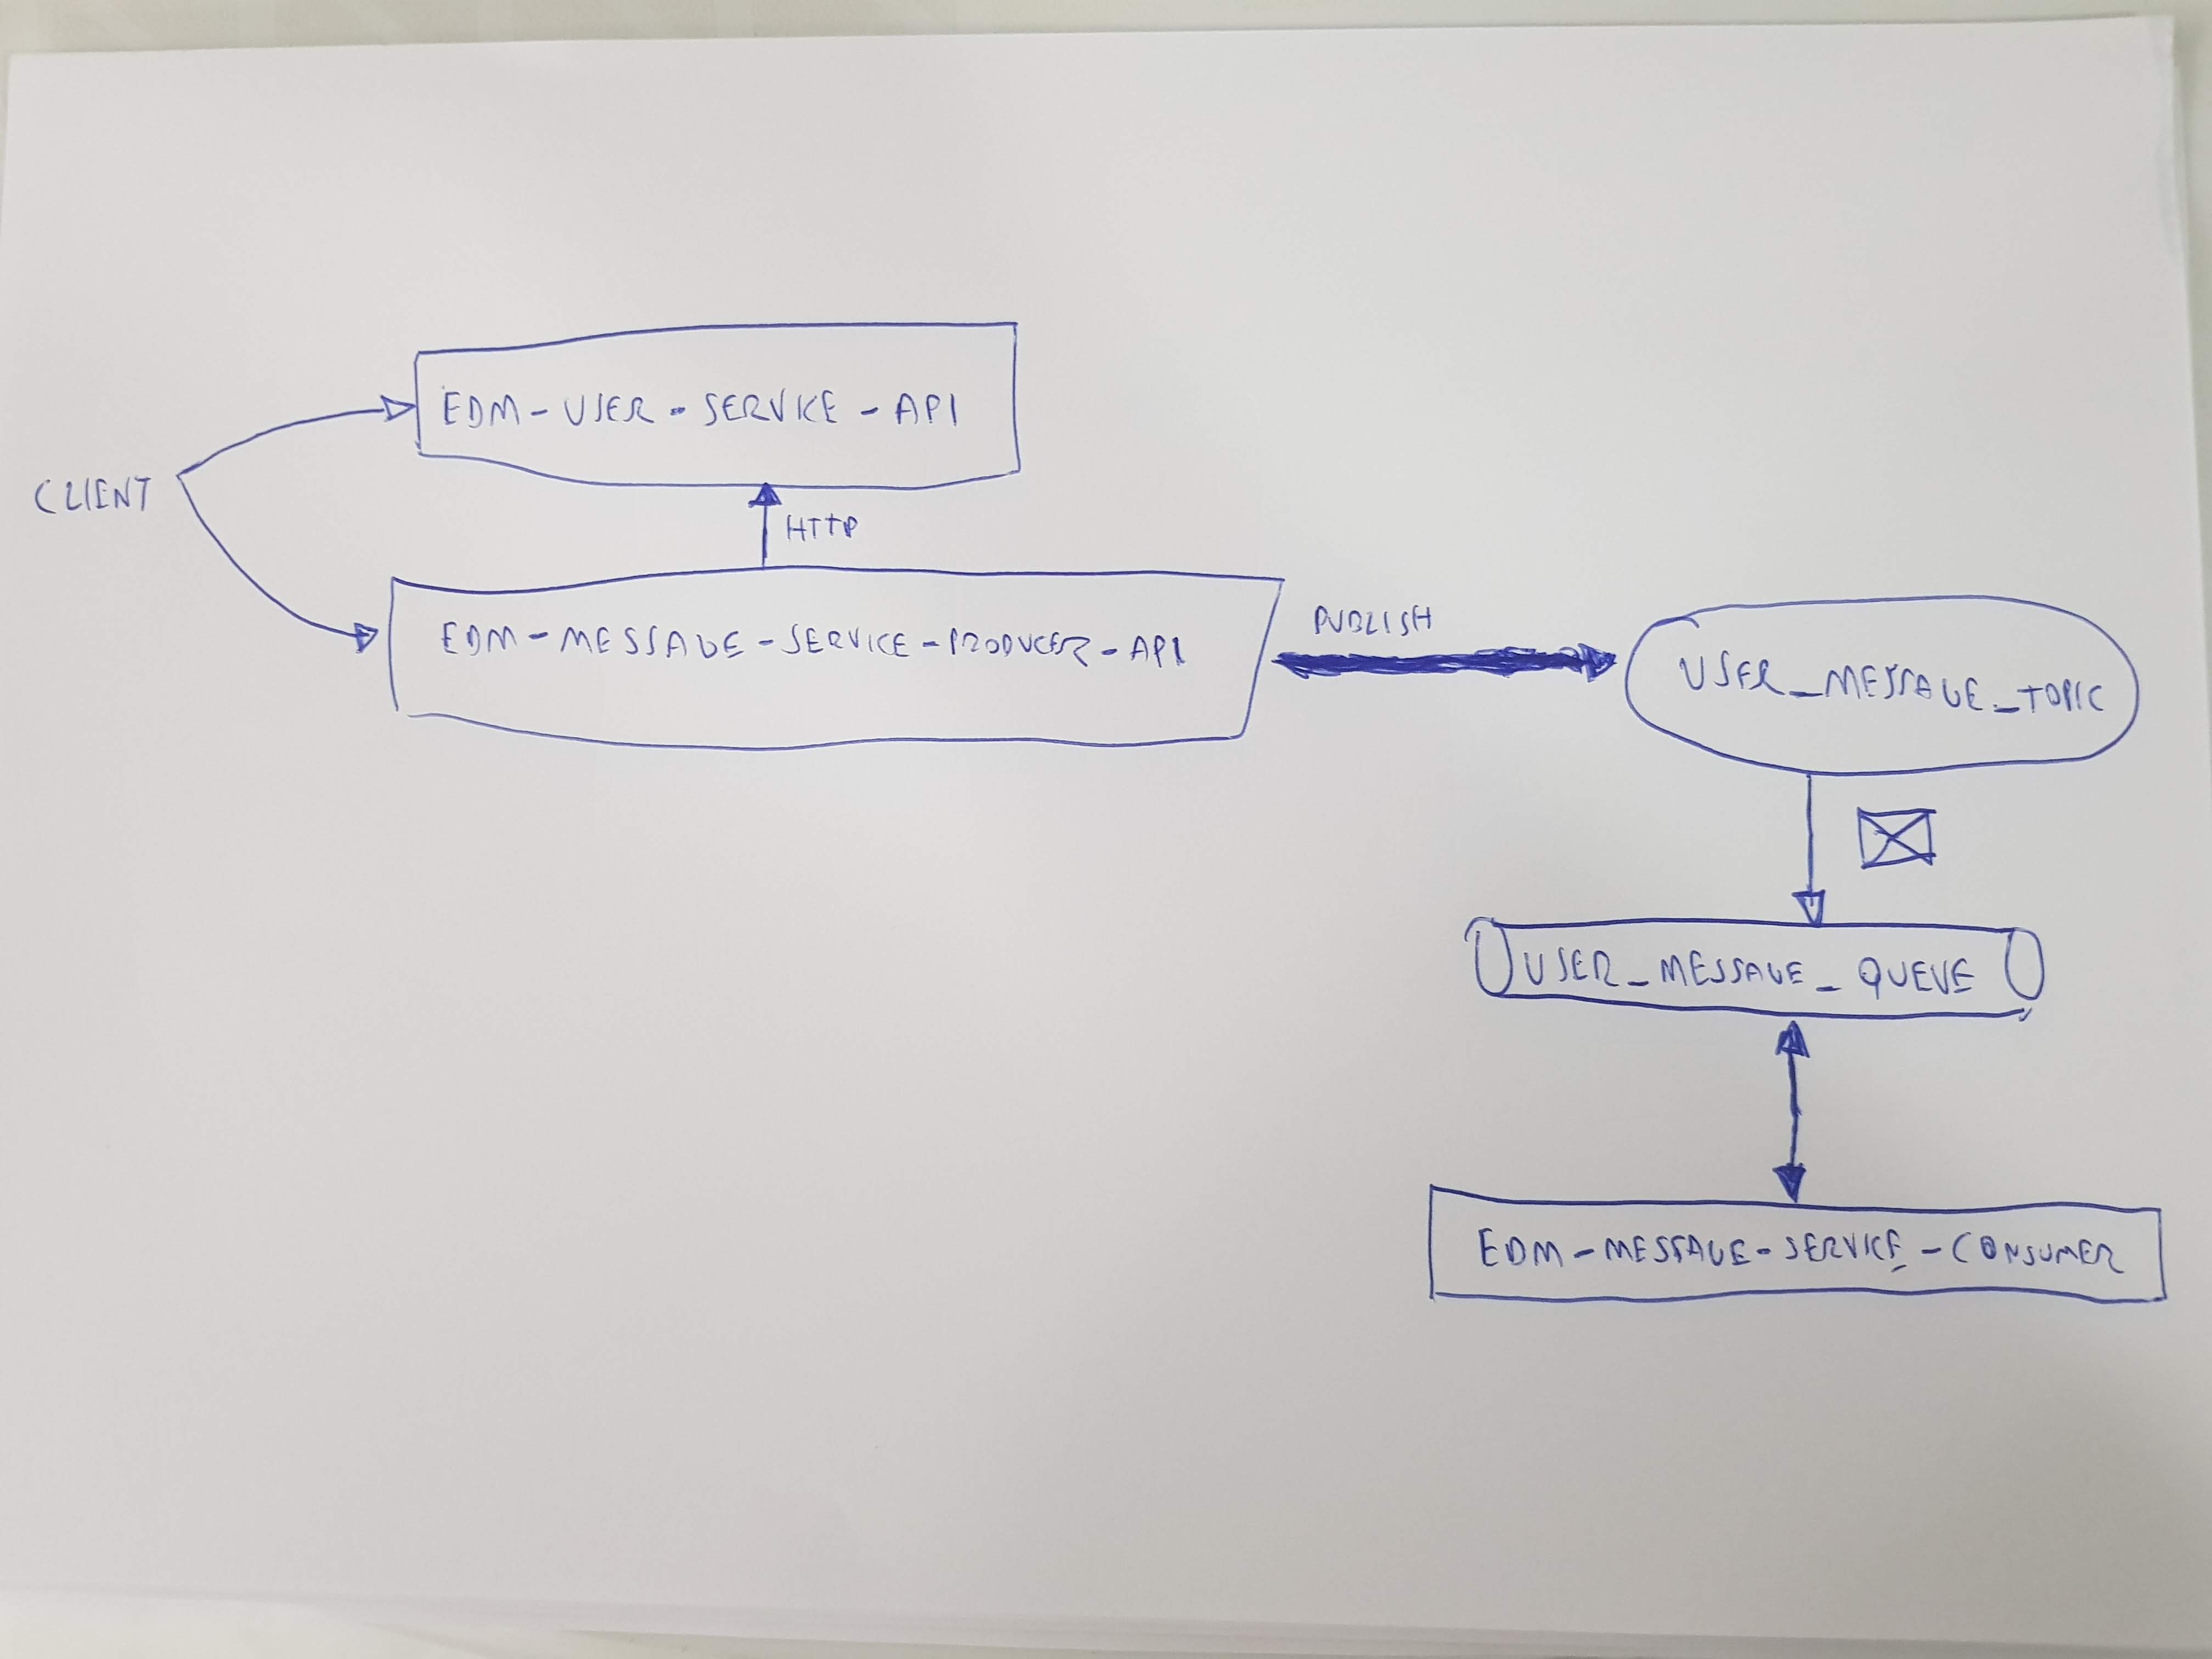 EDM-USER-SERVICE-API
CLIENT
HTTP
EDM-MESSAGE-SERVICE-PRODUCER-API
PUBLISH
USER_MESSAGE_TOPIC
USER_MESSAGE_QUEUE
EDM-MESSAGE-SERVICE-CONSUMER